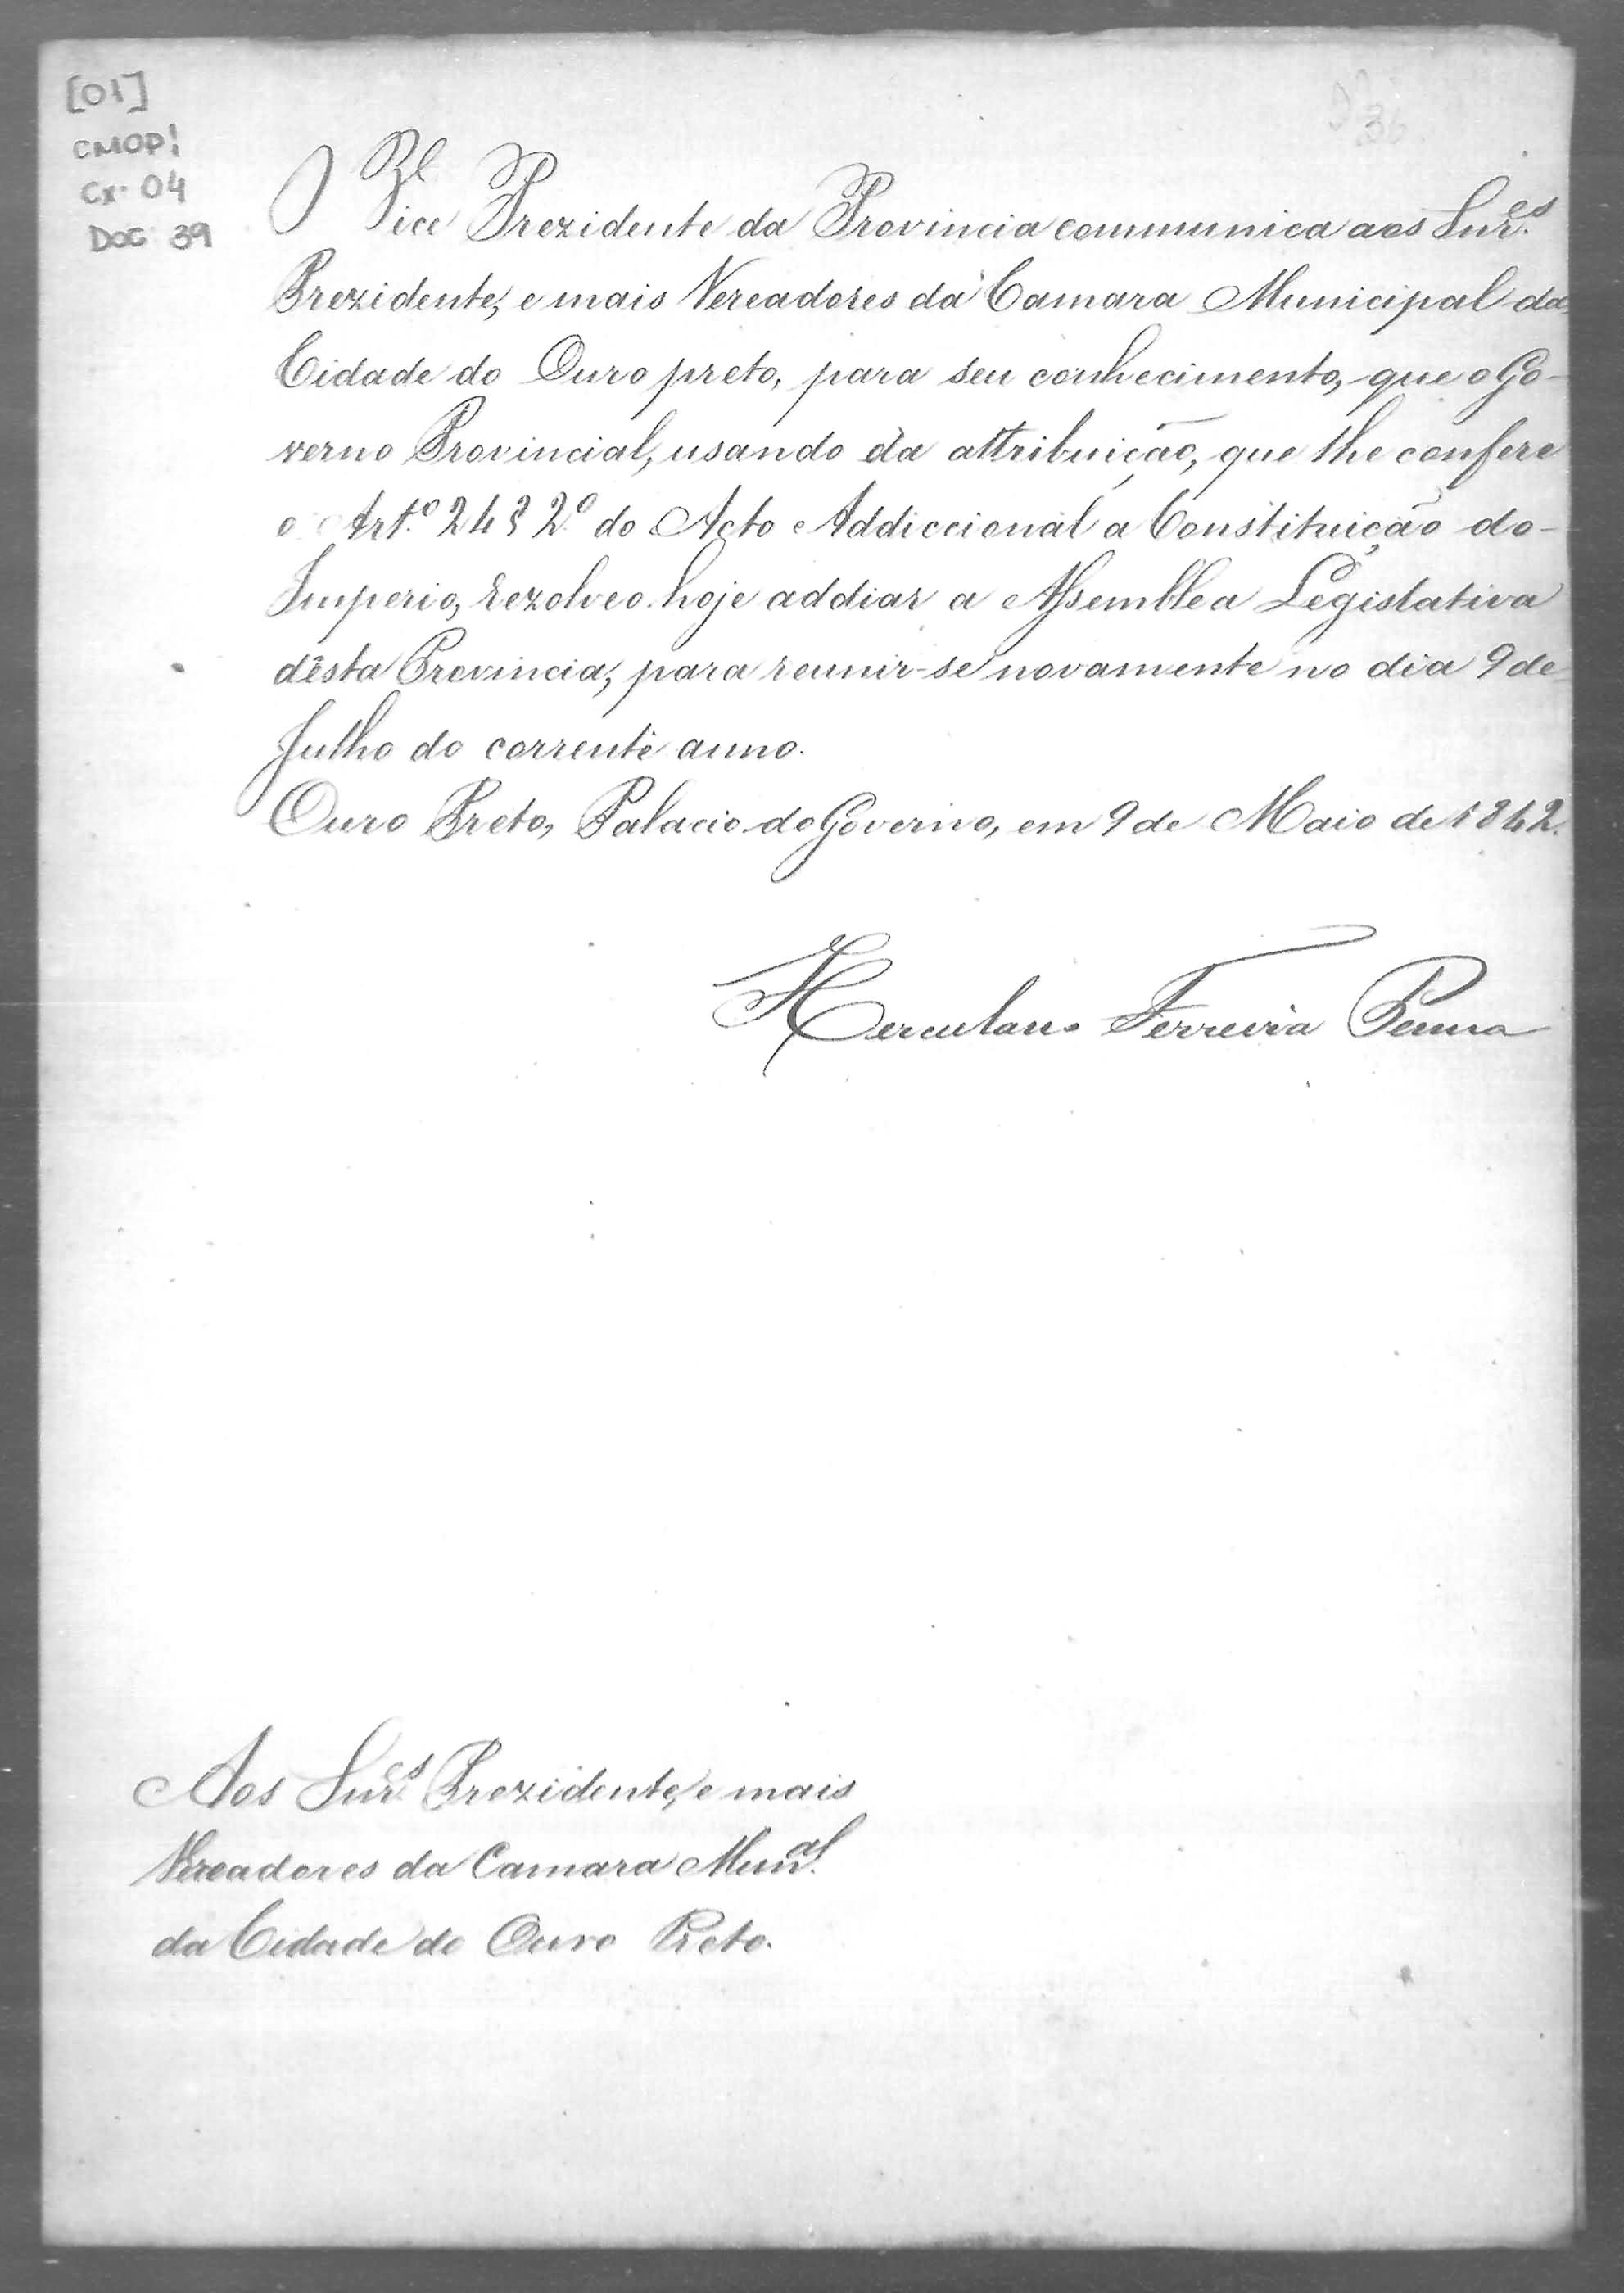 [01]
CMOP
Cx. 04
DOC 39
36
O Vice Prezidente da Provincia communica aos Snr.es
Prezidente, e mais Vereadores da Camara Municipal da
Cidade do Ouro preto, para seu conhecimento, que o Go-
verno Provincial, usando da attribuição, que lhe confere
o Art.º 24 § 2.º do Acto Addiccional a Constituição do
Imperio, rezolveo hoje addiar a Assemblea Legislativa
désta Provincia, para reunir-se novamente no dia 9 de
Julho do corrente anno.
Ouro Preto, Palacio do Governo, em 9 de Maio de 1842.
Herculano Ferreira Penna
Aos Snr.es Prezidente, e mais
Vereadores da Camara Mun.al
da Cidade do Ouro Preto.